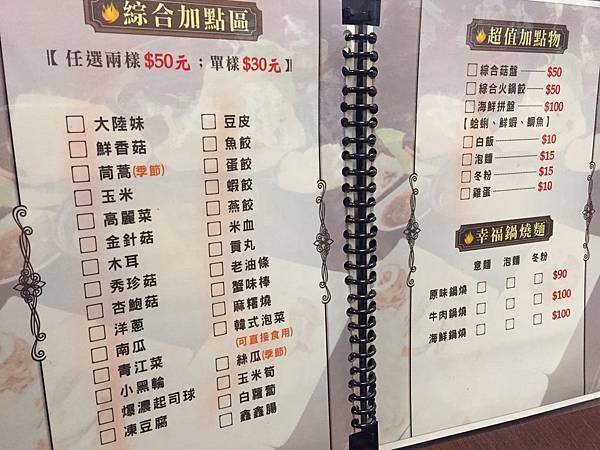 綜合加點區
【任選兩樣$50元；單樣$30元】
大陸妹
鮮香菇
茼蒿(季節)
玉米
高麗菜
金針菇
木耳
秀珍菇
杏鮑菇
洋蔥
南瓜
青江菜
小黑輪
爆濃起司球
凍豆腐
豆皮
魚餃
蛋餃
蝦餃
燕餃
米血
貢丸
老油條
蟹味棒
麻糬燒
韓式泡菜
(可直接食用)
絲瓜(季節)
玉米筍
白蘿蔔
鑫鑫腸
超值加點物
綜合菇盤 $50
綜合火鍋餃 $50
海鮮拼盤 $100
【蛤蜊、鮮蝦、鯛魚】
白飯 $10
泡麵 $15
冬粉 $15
雞蛋 $10
幸福鍋燒麵
意麵 泡麵 冬粉
原味鍋燒 $90
牛肉鍋燒 $100
海鮮鍋燒 $100